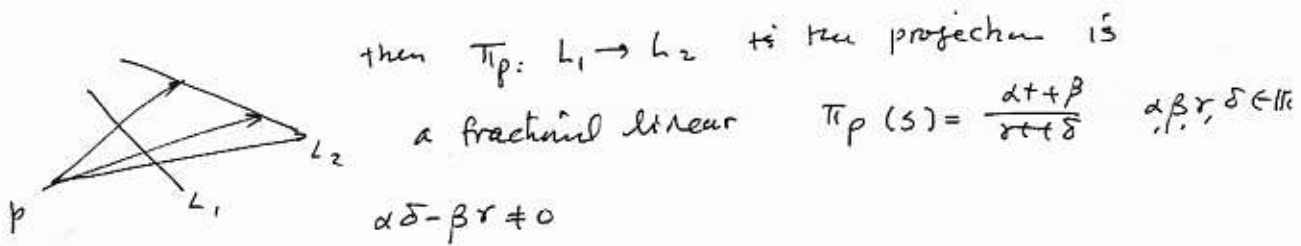 then π_p: L₁ → L₂ is the projection is
a fractional linear π_p (s) = (αt + β)/(γt + δ) α, β, γ, δ ∈ ℝ
L₂
p L₁ αδ - βγ ≠ 0